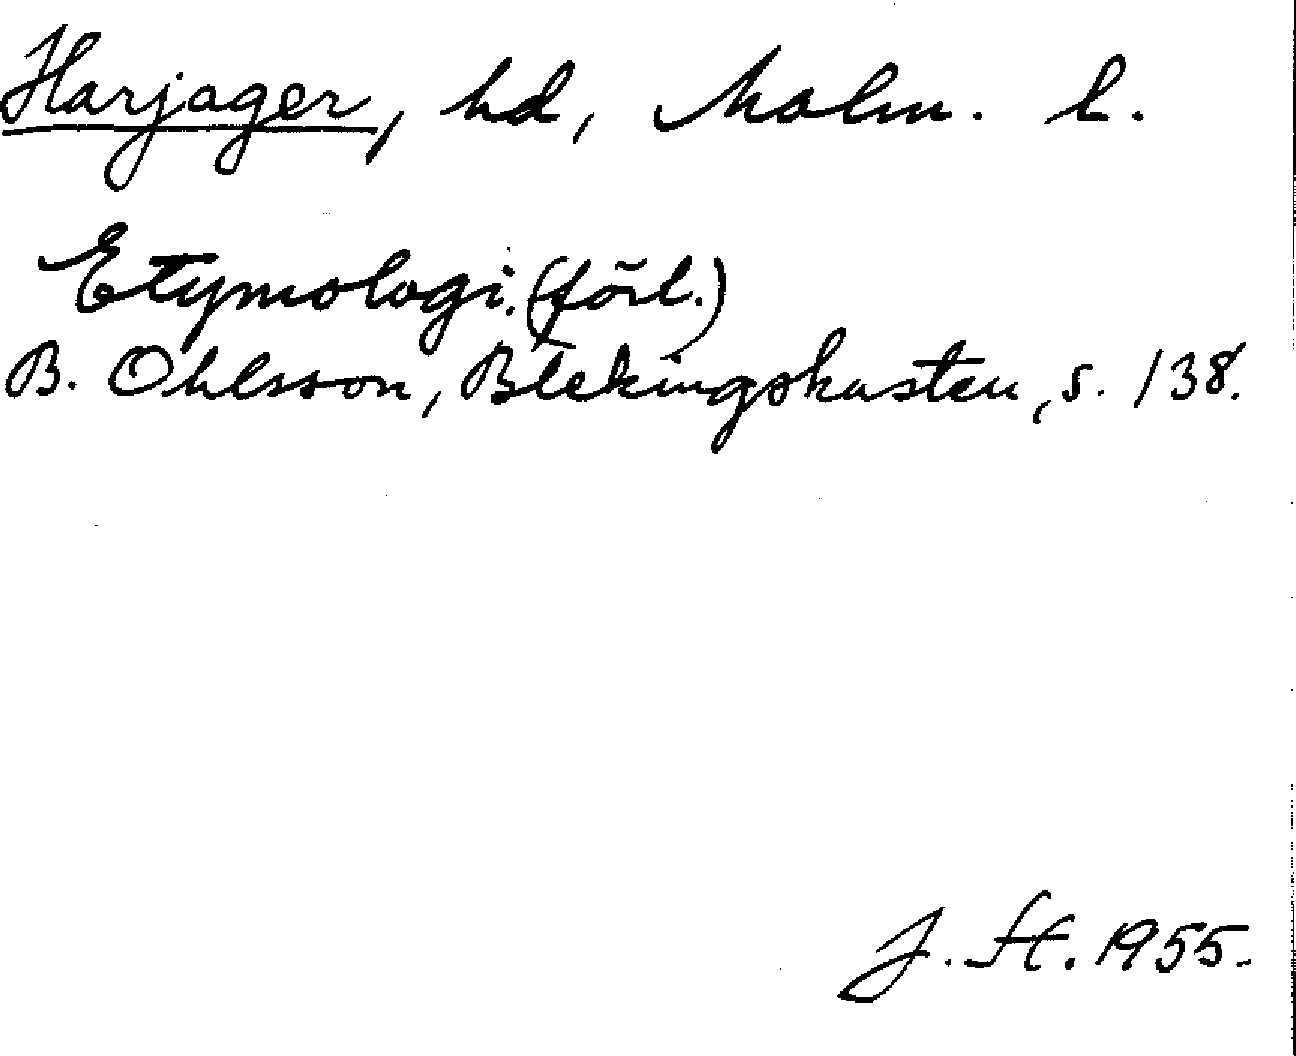 Harjager, hd, Malm. l.
Etymologi. (förl.)
B. Ohlsson, Blekingskusten, s. 138.
J. St. 1955.